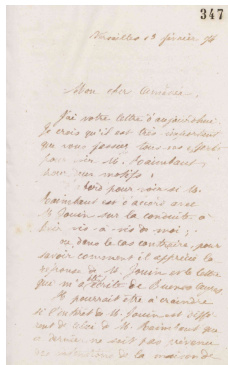 347
Versailles 18 février 74
Mon cher Amédée,
J'ai votre lettre d'aujourd'hui
Je crois qu'il est très important
que vous fassiez tous vos efforts
pour voir M. Raimbaut,
pour deux motifs :
pour voir si M.
Raimbaut est d'accord avec
M. Jouin sur la conduite à
tenir vis-à-vis de moi ;
ou, dans le cas contraire, pour
savoir comment il apprécie la
réponse de M. Jouin et la lettre
que m'a écrite de Buenos Ayres
Il pourrait être à craindre
si l'intérêt de M. Jouin est diffé-
rent de celui de M. Raimbaut que
ce dernier ne soit pas prévenu
des intentions de la maison de